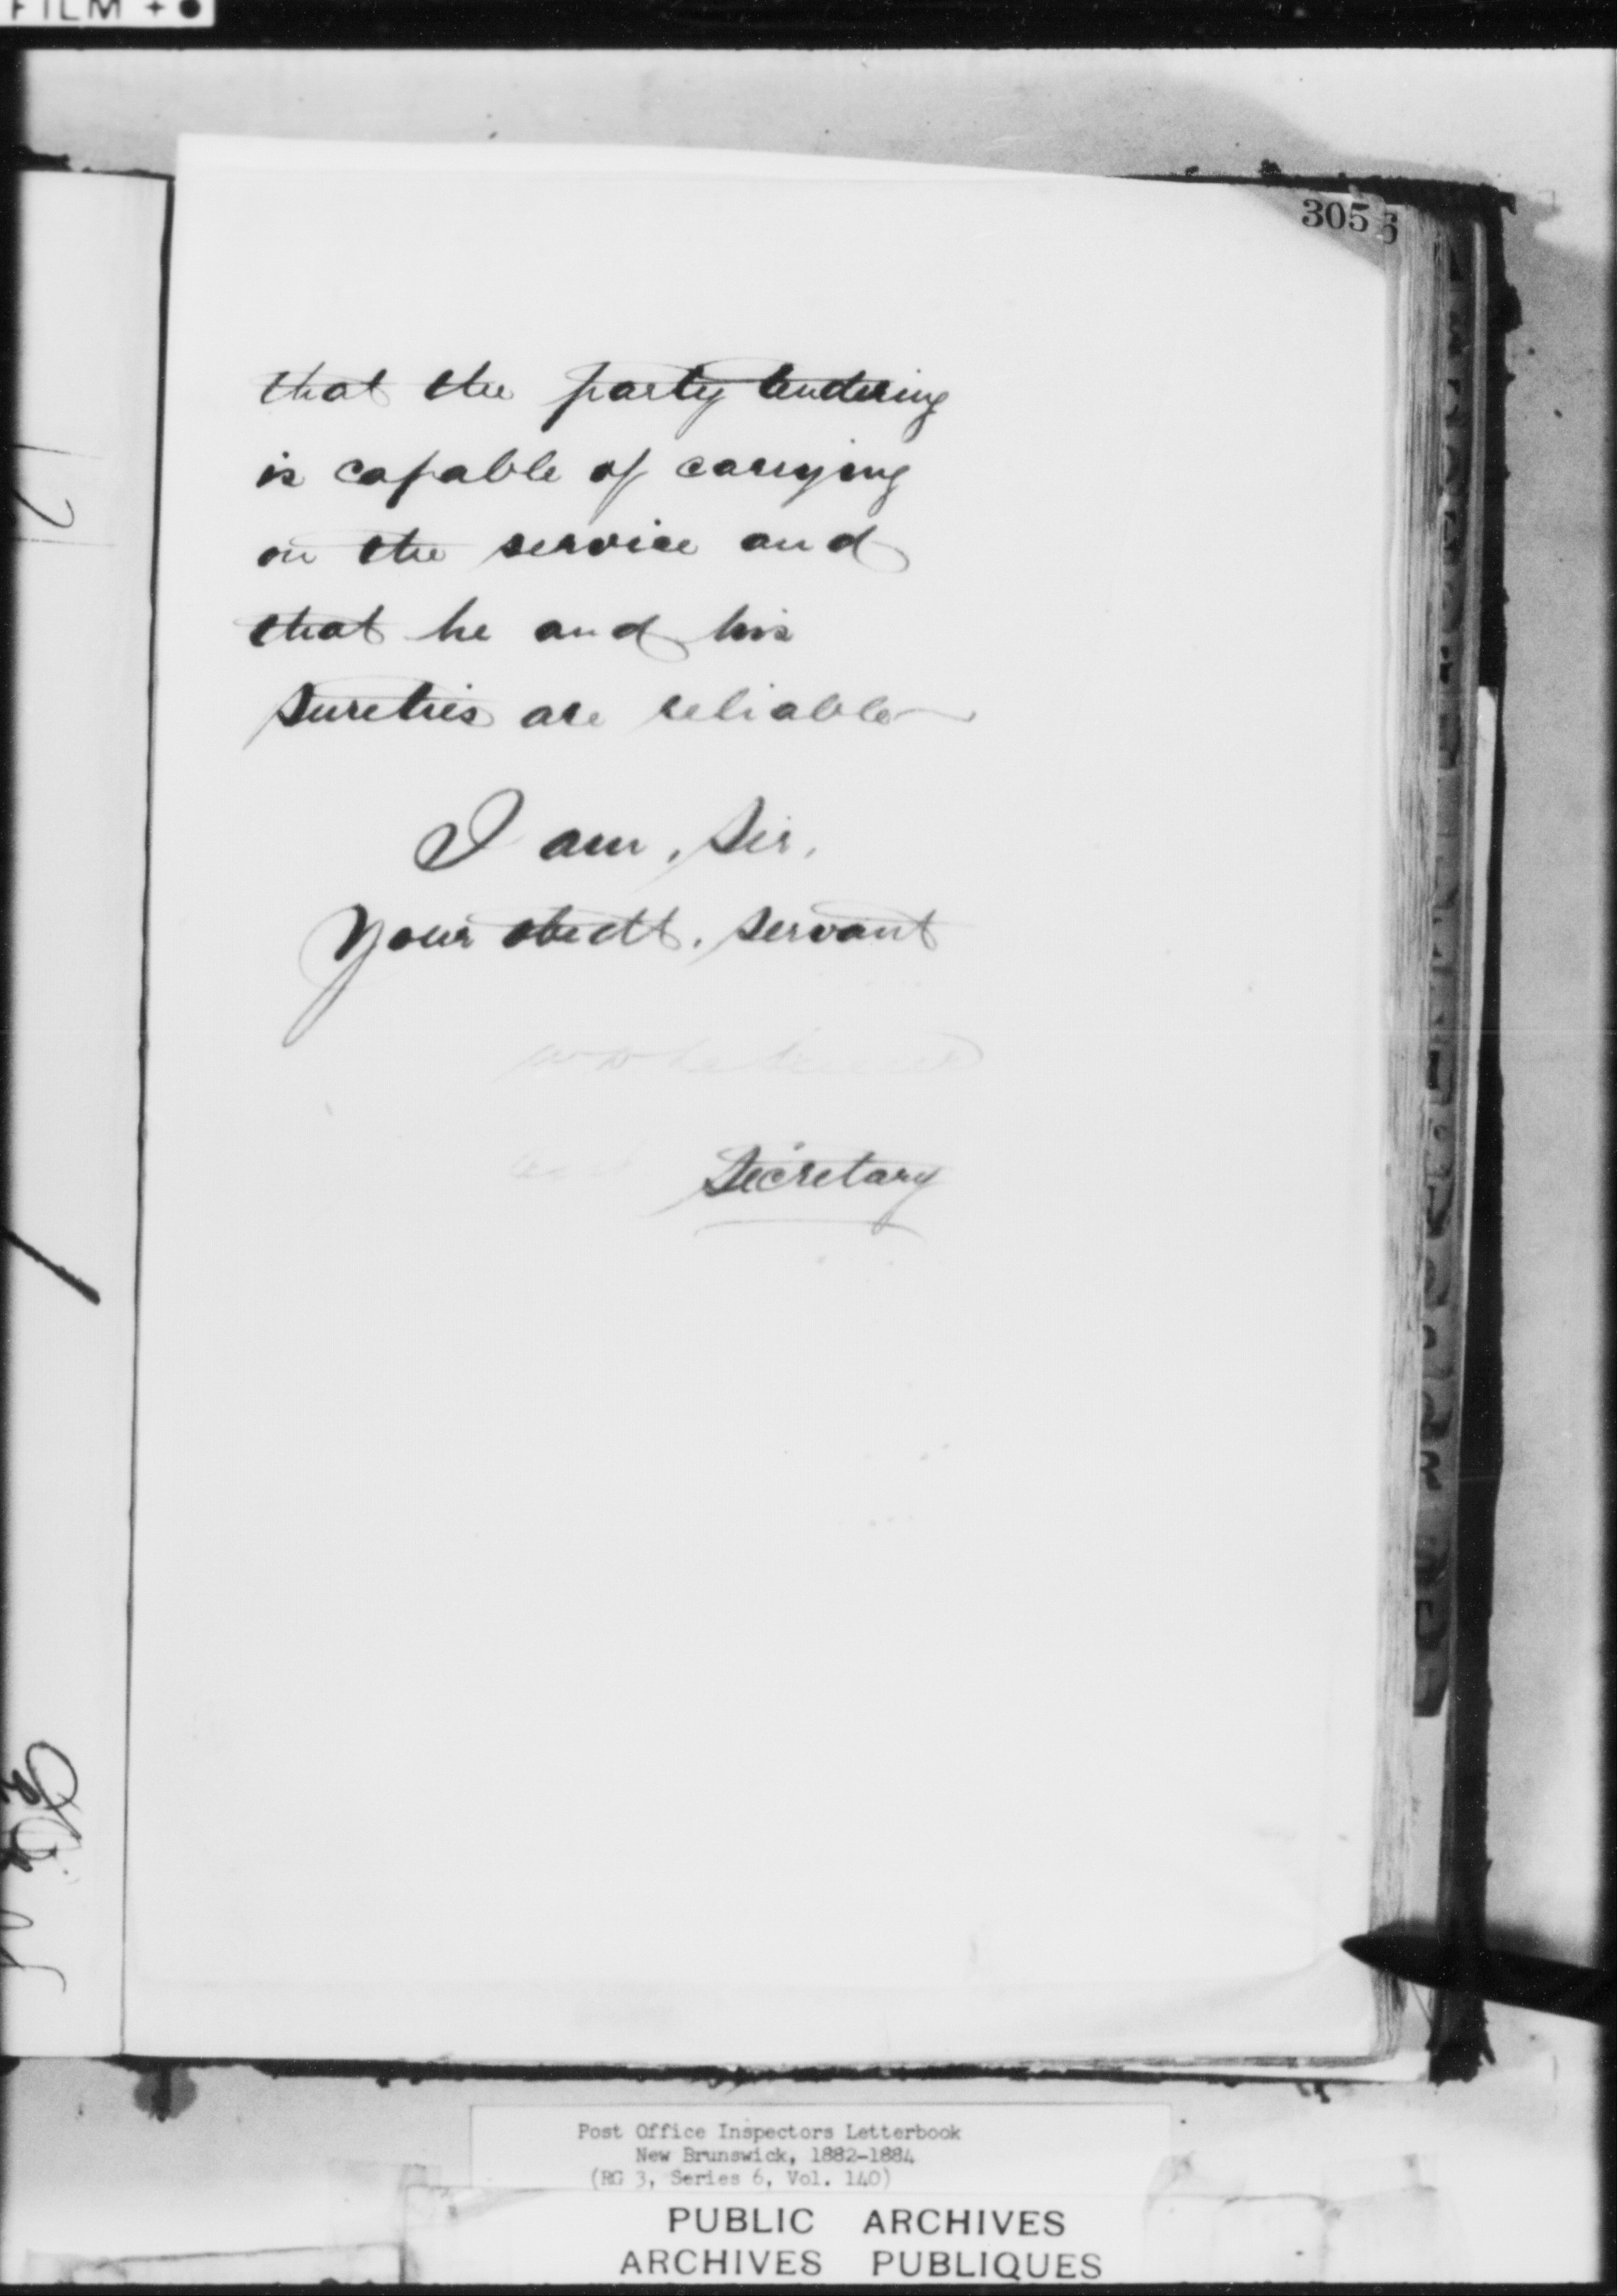 FILM + ●
305
that the party tendering
is capable of carrying
on the service and
that he and his
sureties are reliable
I am, Sir,
Your obedt. servant
Secretary
Post Office Inspectors Letterbook
New Brunswick, 1882-1884
(RG 3, Series 6, Vol. 140)
PUBLIC ARCHIVES
ARCHIVES PUBLIQUES